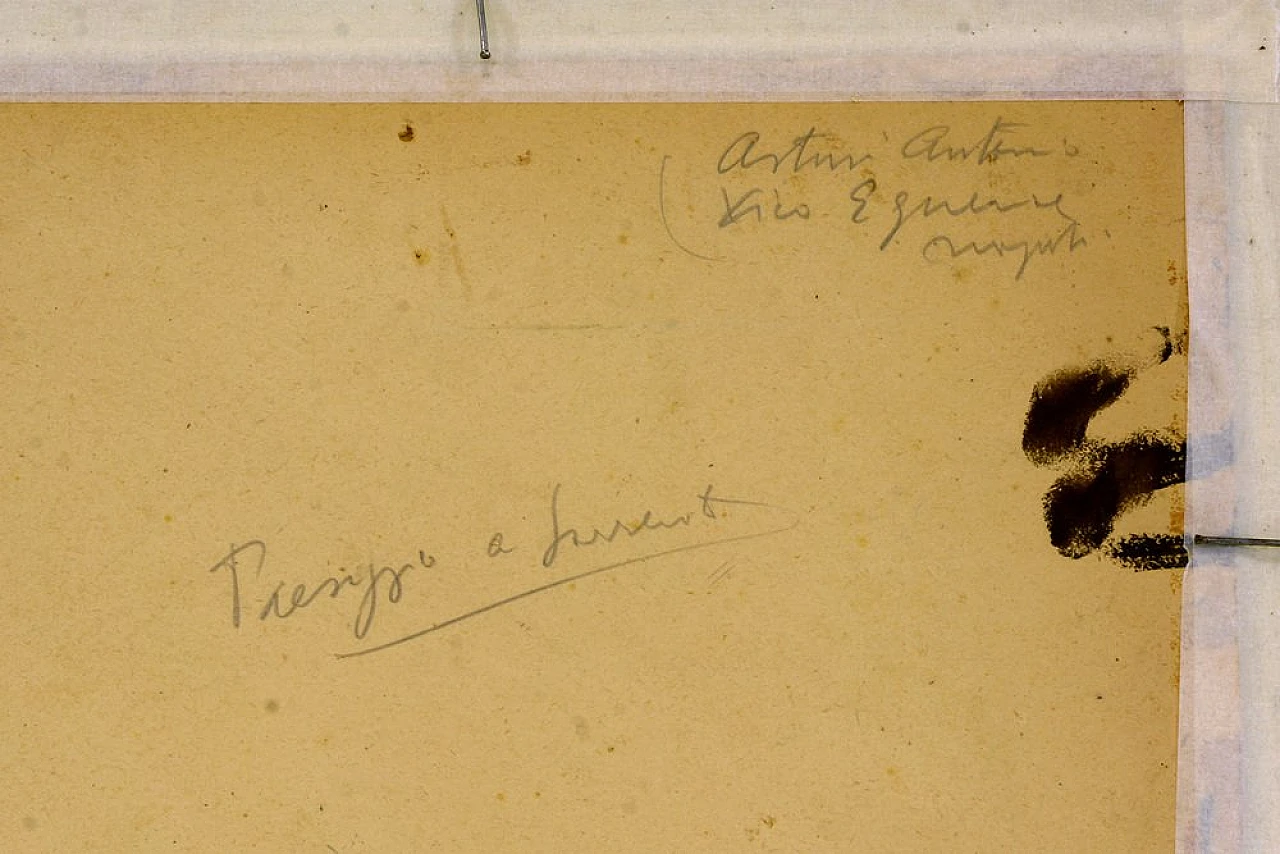 Arturi Antonio
Vico Equense
Napoli
Paesaggio a Sorrento